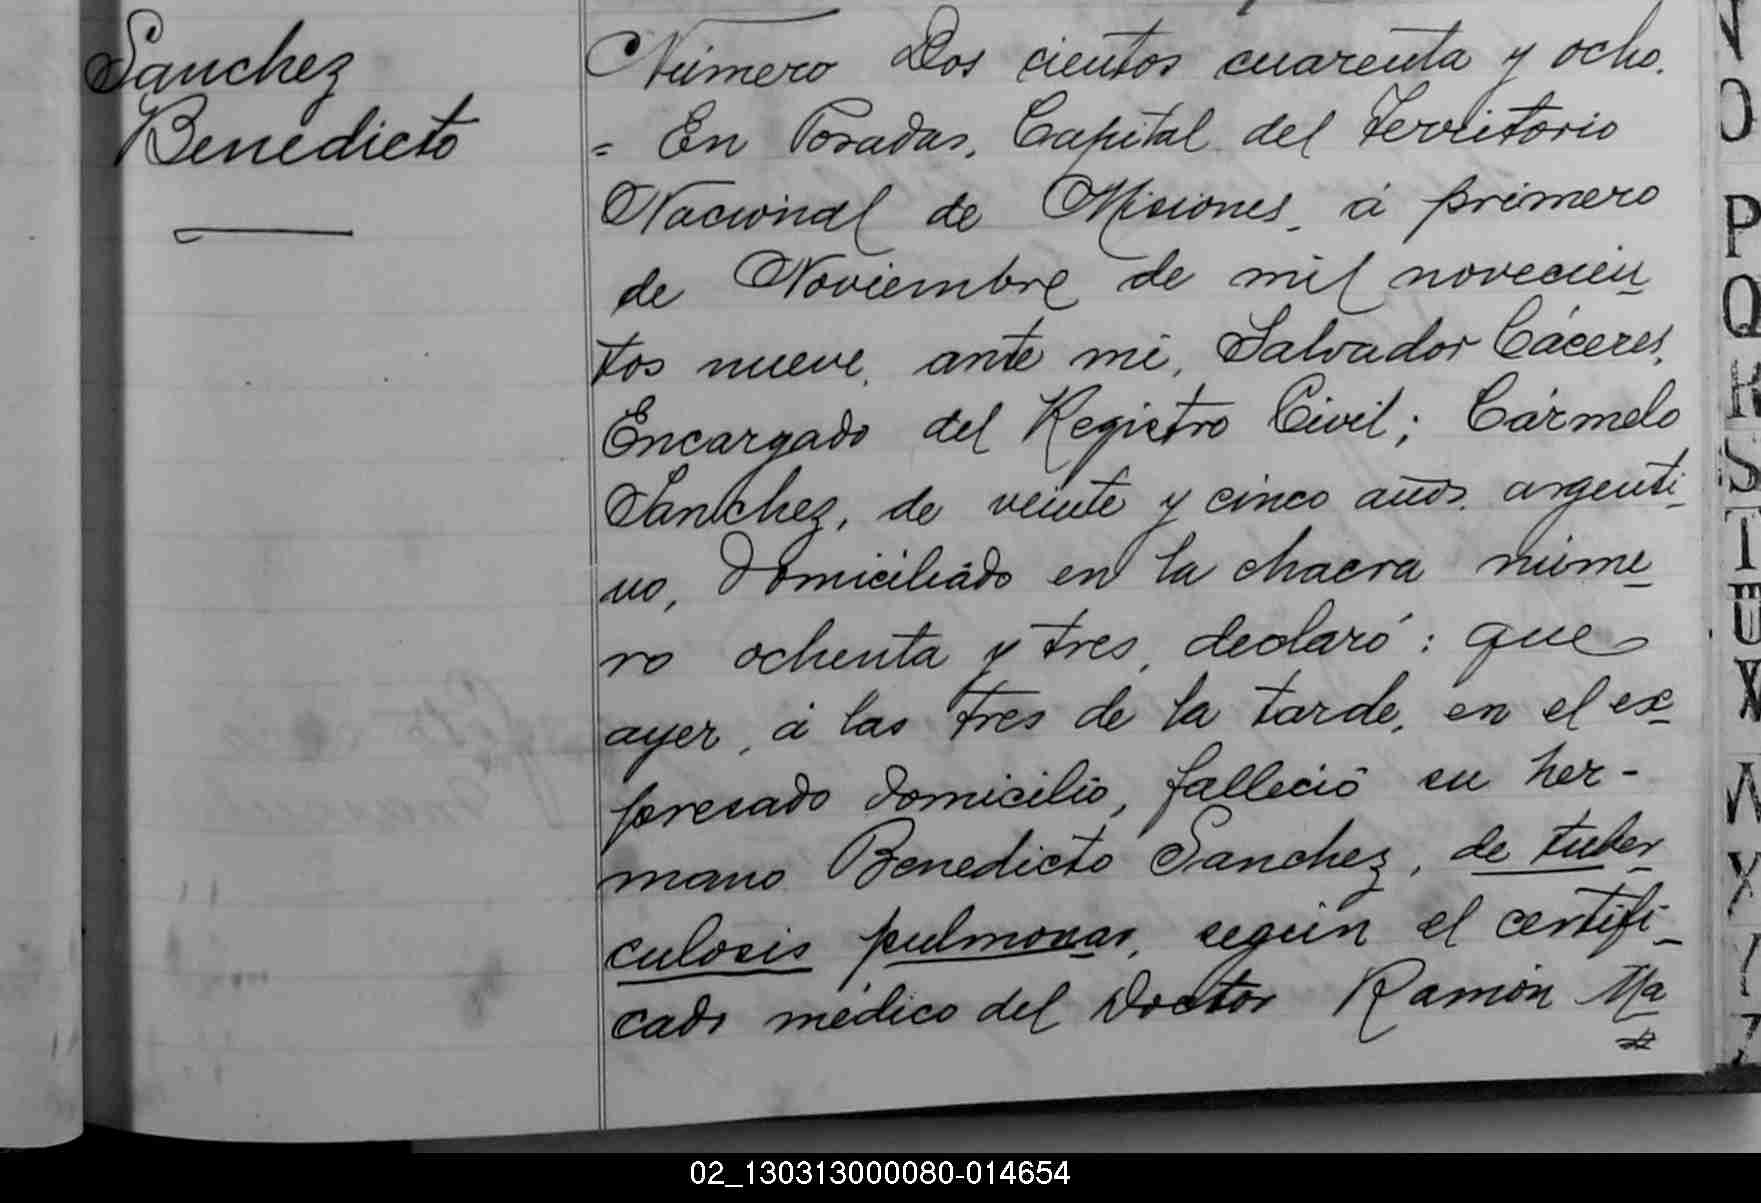 Sanchez
Benedicto
Número Dos cientos cuarenta y ocho.
= En Posadas, Capital del Territorio
Nacional de Misiones, á primero
de Noviembre de mil novecien
tos nueve, ante mi, Salvador Cáceres,
Encargado del Registro Civil; Cármelo
Sanchez, de veinte y cinco años, argenti-
no, domiciliado en la chacra núme
ro ochenta y tres, declaró: que
ayer, á las tres de la tarde, en el ex
presado domicilio, falleció su her-
mano Benedicto Sanchez, de tuber
culosis pulmonar, según el certifi-
cado médico del Doctor Ramón Ma
N
O
P
Q
R
S
T
U
X
Y
Z
02_130313000080-014654